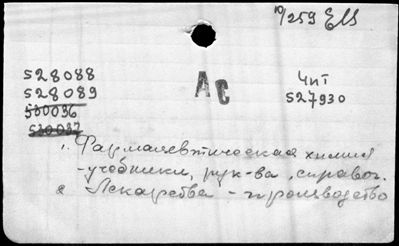 10/259 ЕШ
528088
528089
530036
530037
АС
Чит
527930
1. Фармацевтическая химия
-учебники, рук-ва, справоч.
2. Лекарства - производство